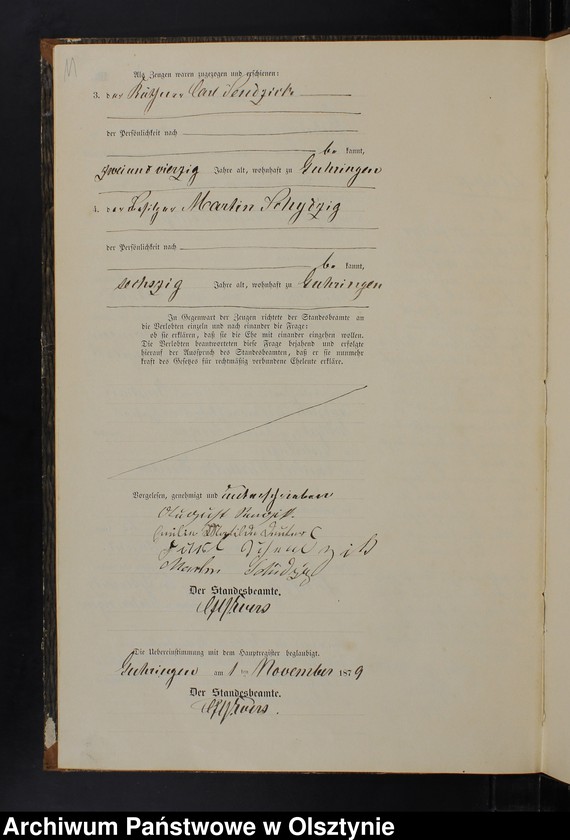 Als Zeugen waren zugezogen und erschienen:
3. der Käthner Carl Sendzick
der Persönlichkeit nach
be kannt,
zwei und vierzig Jahre alt, wohnhaft zu Guhringen
4. der Besitzer Martin
der Persönlichkeit nach
be kannt,
sechszig Jahre alt, wohnhaft zu Guhringen
In Gegenwart der Zeugen richtete der Standesbeamte an
die Verlobten einzeln und nach einander die Frage:
ob sie erklären, daß sie die Ehe mit einander eingehen wollen.
Die Verlobten beantworteten diese Frage bejahend und erfolgte
hierauf der Ausspruch des Standesbeamten, daß er sie nunmehr
kraft des Gesetzes für rechtmäßig verbundene Eheleute erkläre.
Vorgelesen, genehmigt und unterschrieben
August
Martin
Der Standesbeamte.
Evers
Die Uebereinstimmung mit dem Hauptregister beglaubigt.
Guhringen am 1 ten November 1879
Der Standesbeamte.
Evers.
Archiwum Państwowe w Olsztynie